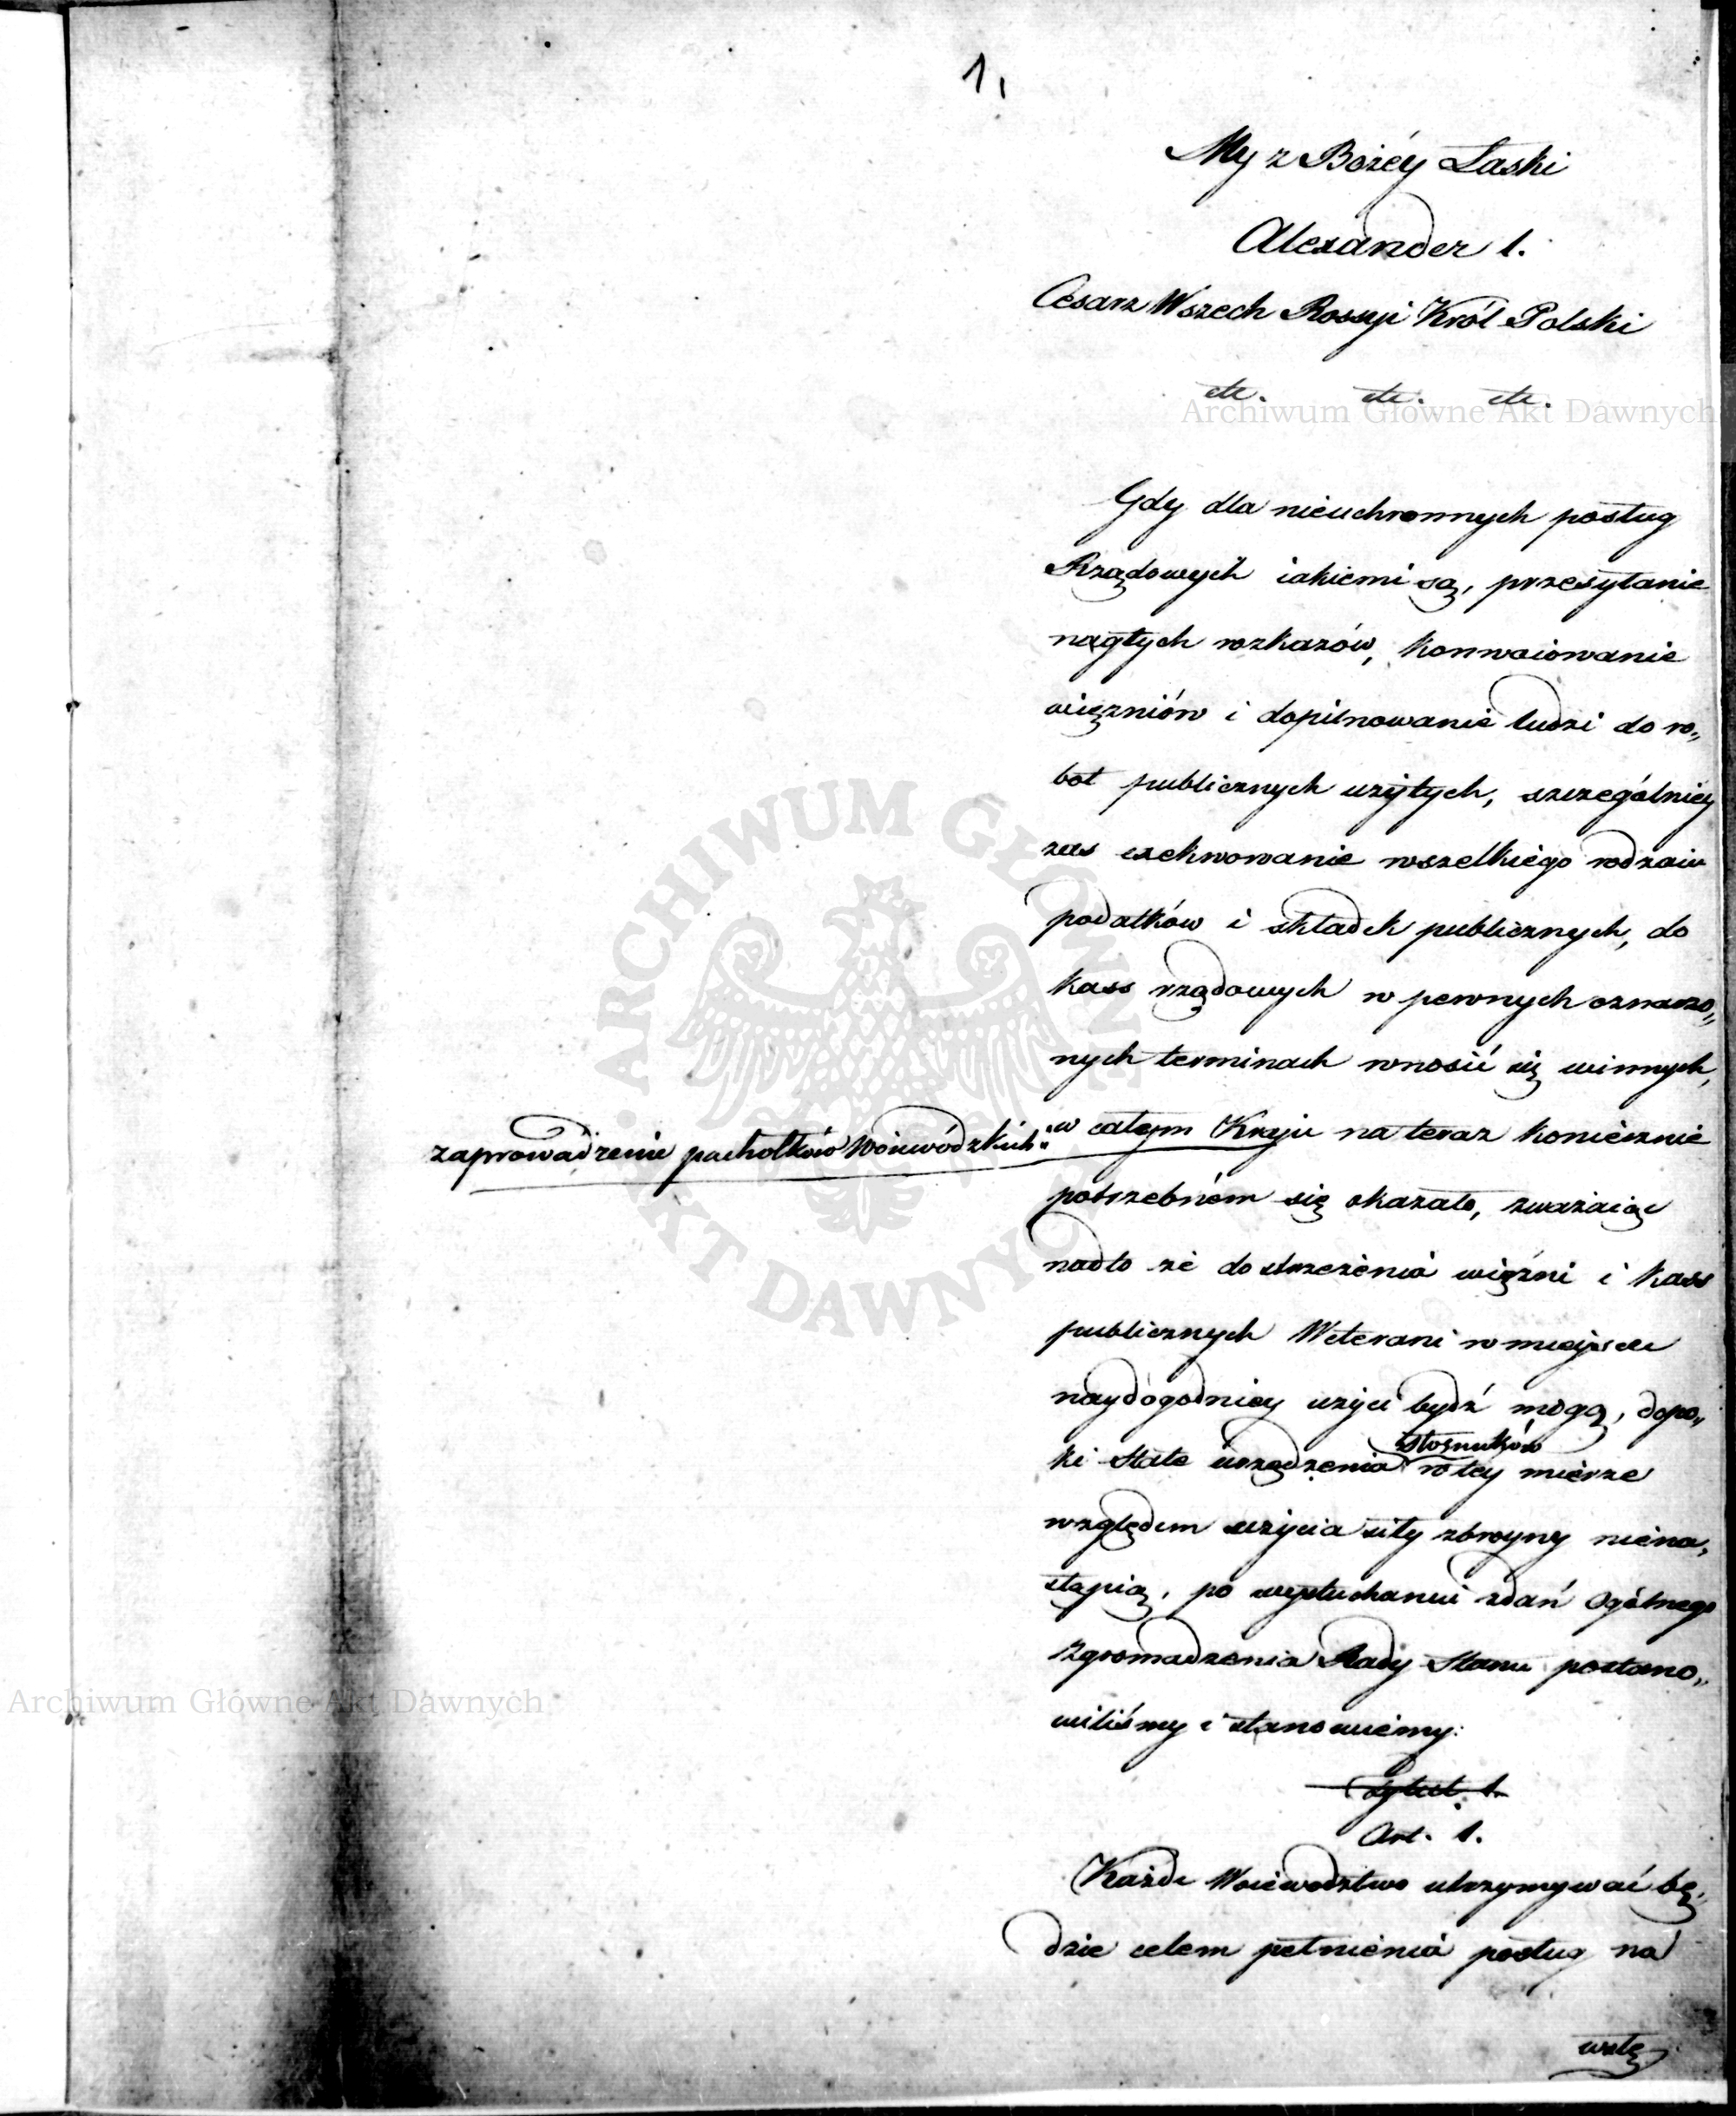 1,
My z Bożéy Łaski
Alexander 1.
Cesarz Wszech Rossyi Król Polski
etc. etc. etc.
Archiwum Główne Akt Dawnych
Gdy dla nieuchronnych posług
Rządowych iakiemi są, przesyłanie
nagłych rozkazów, konwoiowanie
więzniów i dopilnowanie ludzi do ro„
bot publicznych użytych, szczególniey
zas exekwowanie wszelkiego rodzaiu
podatków i składek publicznych, do
kass rządowych w pewnych oznaczo„
nych terminach wnosić się winnych,
zaprowadzenie pachołków Woiewódzkich
w całym Kraju na teraz koniecznie
potrzebném się okazało, zważaiąc
nadto że do strzeżenia więzni i kass
publicznych Weterani w mieysce
naydogodniey użyci bydź mogą, dopo„
stosunków
ki stałe urządzenia w tey mierze
względem użycia siły zbroyny niena„
stąpią, po wysłuchaniu zdań Ogólnego
Zgromadzenia Rady Stanu postano„
wiliśmy i stanowiemy:
Tytuł 1.
Art. 1.
Każde Woiewodztwo utrzymywać bę„
dzie celem pełnienia posług na
wstę
ARCHIWUM GŁÓWNE AKT DAWNYCH
Archiwum Główne Akt Dawnych